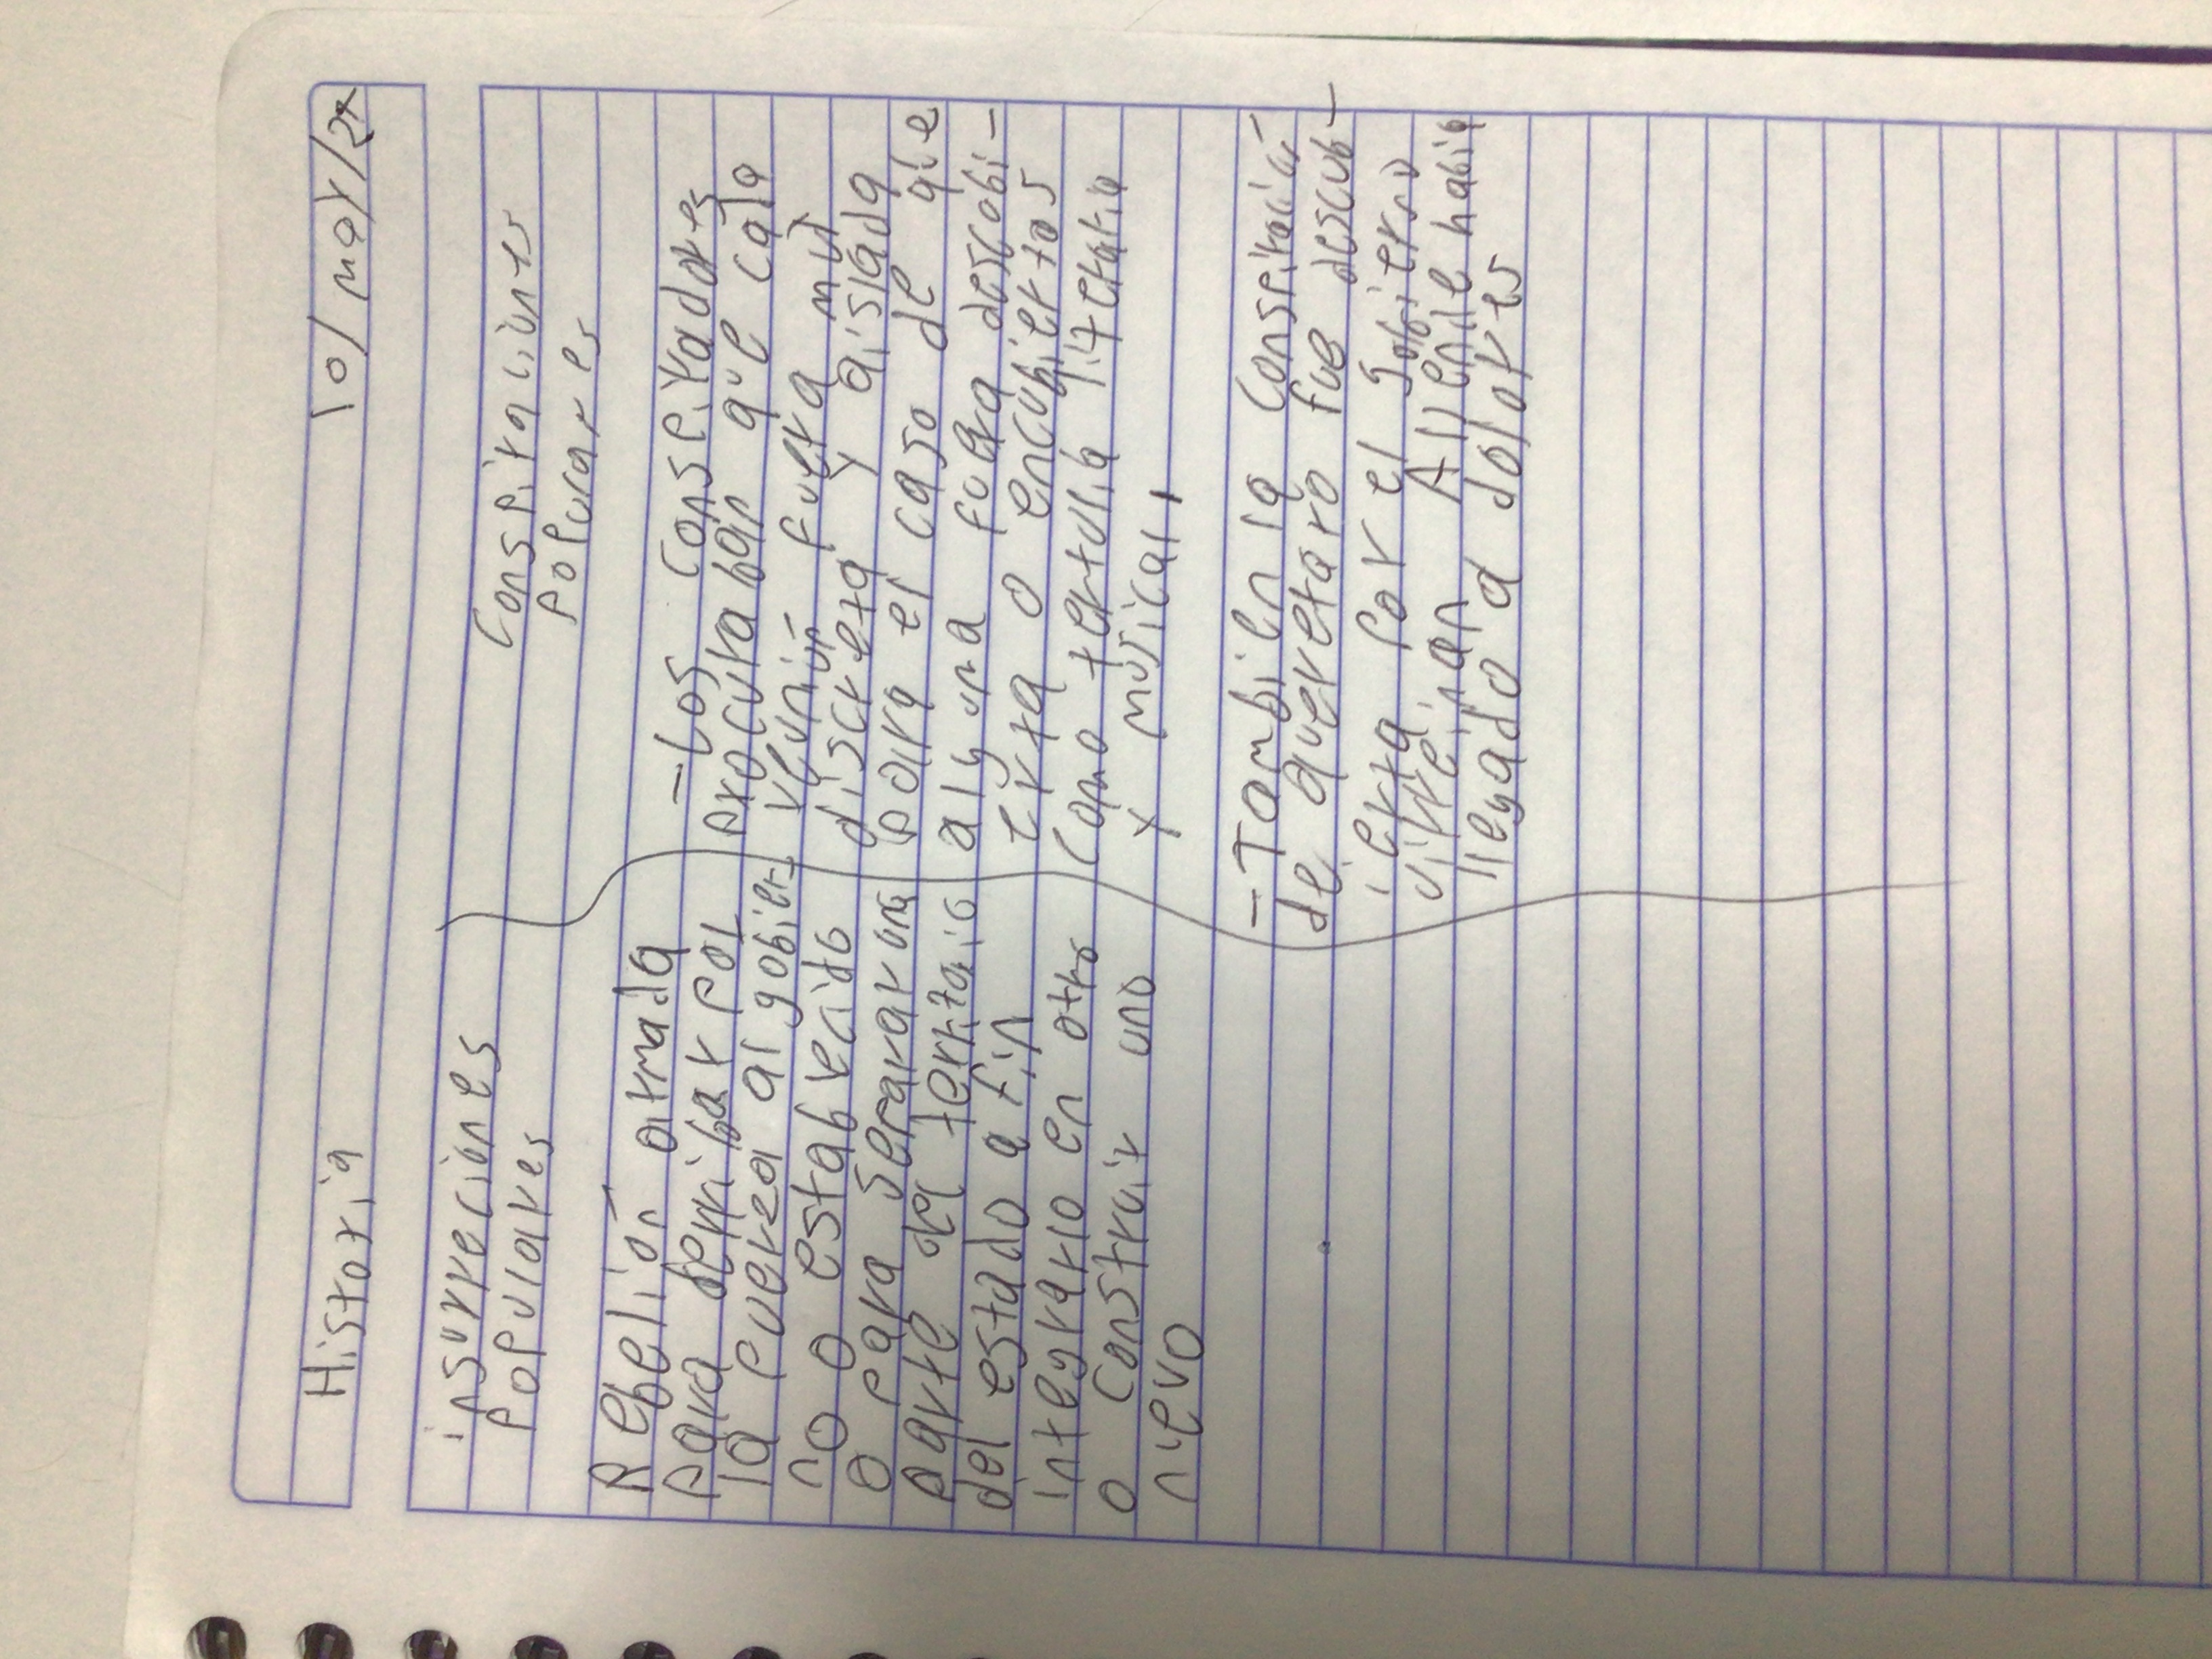 Historia
10/may/24
insurreciones
populares
Rebelión armada
para derribar por
la puerza al gobier-
no o establecido
o para separar una
parte del territorio
del estado a fin
integrarlo en otro
o construir uno
nuevo
Conspiraciones
populares
-Los conspiradores
procuraban que cada
reunión fuera muy
discreta y aislada
para el caso de que
alguna fuera descubi-
erta o encubiertos
como tertulia literaria
y musical,
-Tambien la conspiració
de queretaro fue descub-
ierta por el gobierno
virreinan Allende habia
llegado a dolores